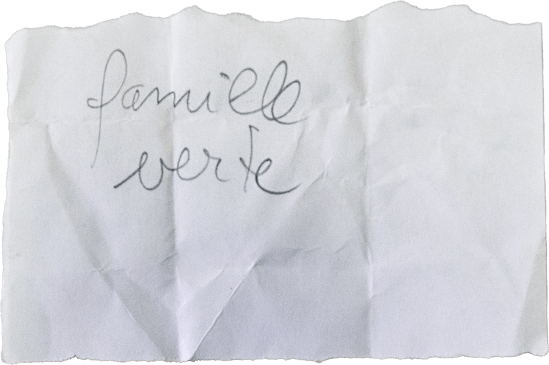 famille
verte